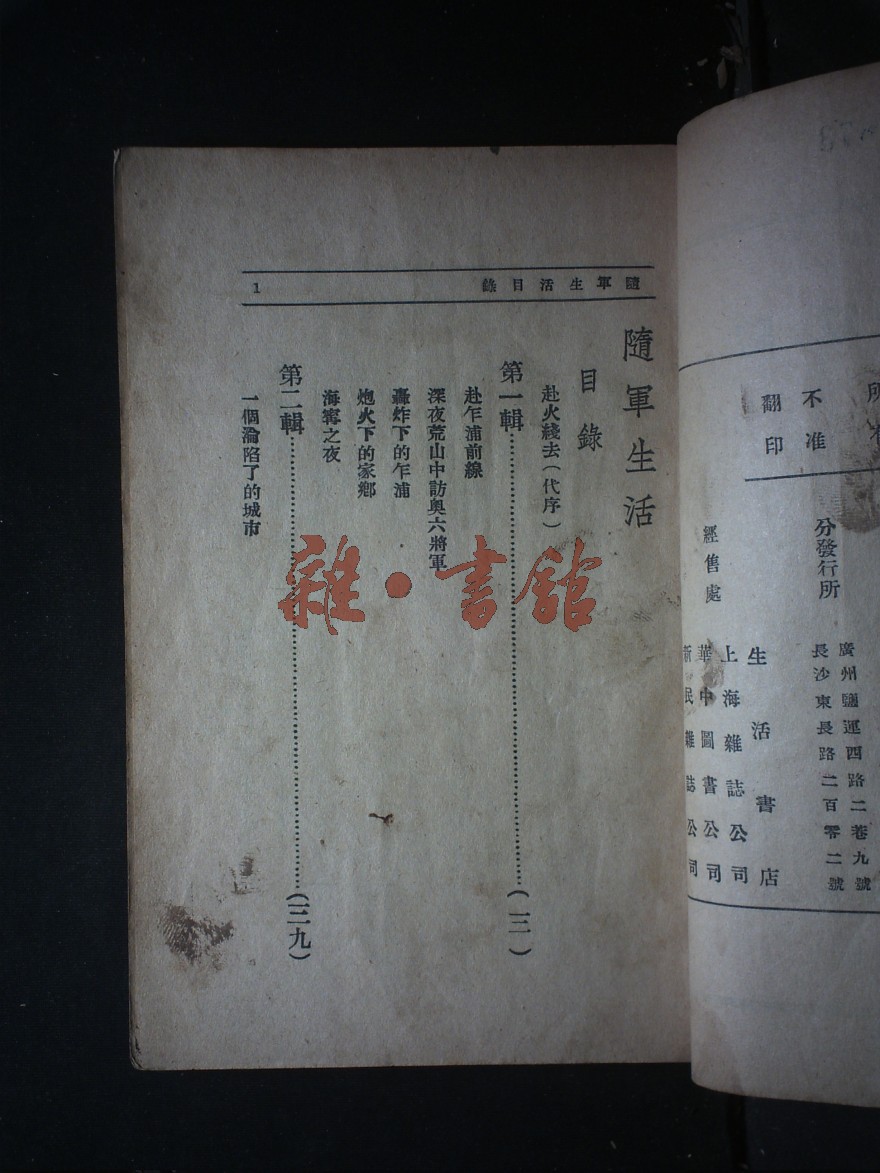 不准
翻印
分發行所
廣州鹽運西路二巷九號
長沙東長路二百零二號
經售處
生活書店
上海雜誌公司
華中圖書公司
新民雜誌公司
隨軍生活目錄
1
隨軍生活
目錄
赴火綫去（代序）
第一輯
赴乍浦前線
深夜荒山中訪奧六將軍
轟炸下的乍浦
炮火下的家鄉
海寗之夜
第二輯
一個淪陷了的城市
雜·書舘